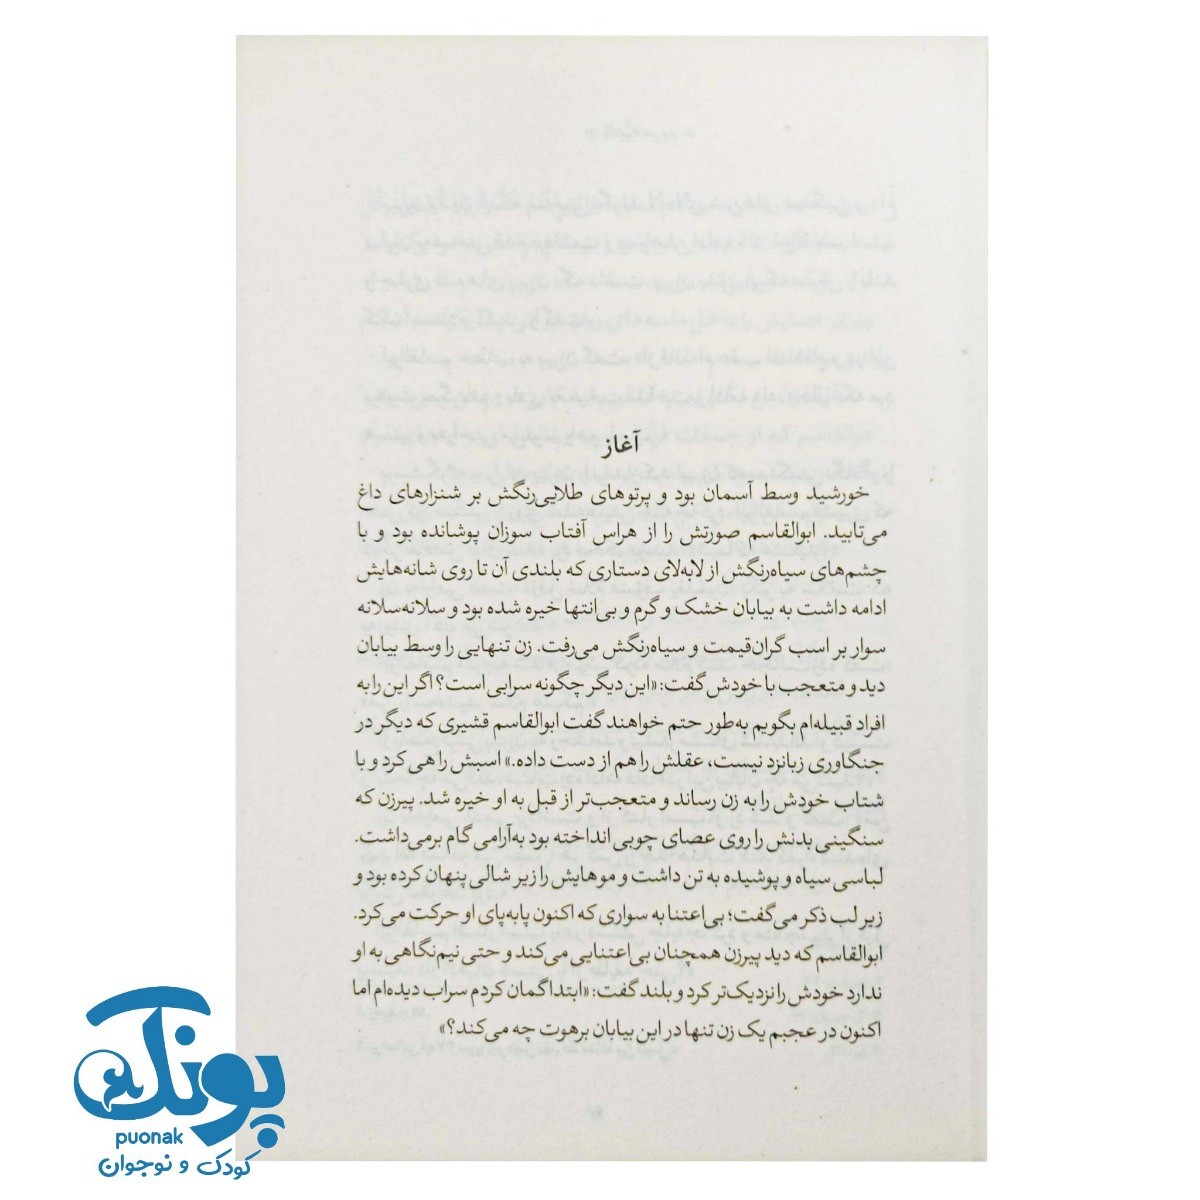 آغاز
خورشید وسط آسمان بود و پرتوهای طلایی‌رنگش بر شنزارهای داغ
می‌تابید. ابوالقاسم صورتش را از هراس آفتاب سوزان پوشانده بود و با
چشم‌های سیاه‌رنگش از لابه‌لای دستاری که بلندی آن تا روی شانه‌هایش
ادامه داشت به بیابان خشک و گرم و بی‌انتها خیره شده بود و سلانه‌سلانه
سوار بر اسب گران‌قیمت و سیاه‌رنگش می‌رفت. زن تنهایی را وسط بیابان
دید و متعجب با خودش گفت: «این دیگر چگونه سرابی است؟ اگر این را به
افراد قبیله‌ام بگویم به‌طور حتم خواهند گفت ابوالقاسم قشیری که دیگر در
جنگاوری زبانزد نیست، عقلش را هم از دست داده.» اسبش را هی کرد و با
شتاب خودش را به زن رساند و متعجب‌تر از قبل به او خیره شد. پیرزن که
سنگینی بدنش را روی عصای چوبی انداخته بود به‌آرامی گام برمی‌داشت.
لباسی سیاه و پوشیده به تن داشت و موهایش را زیر شالی پنهان کرده بود و
زیر لب ذکر می‌گفت؛ بی‌اعتنا به سواری که اکنون پابه‌پای او حرکت می‌کرد.
ابوالقاسم که دید پیرزن همچنان بی‌اعتنایی می‌کند و حتی نیم‌نگاهی به او
ندارد خودش را نزدیک‌تر کرد و بلند گفت: «ابتدا گمان کردم سراب دیده‌ام اما
اکنون در عجبم یک زن تنها در این بیابان برهوت چه می‌کند؟»
پونک
puonak
کودک و نوجوان